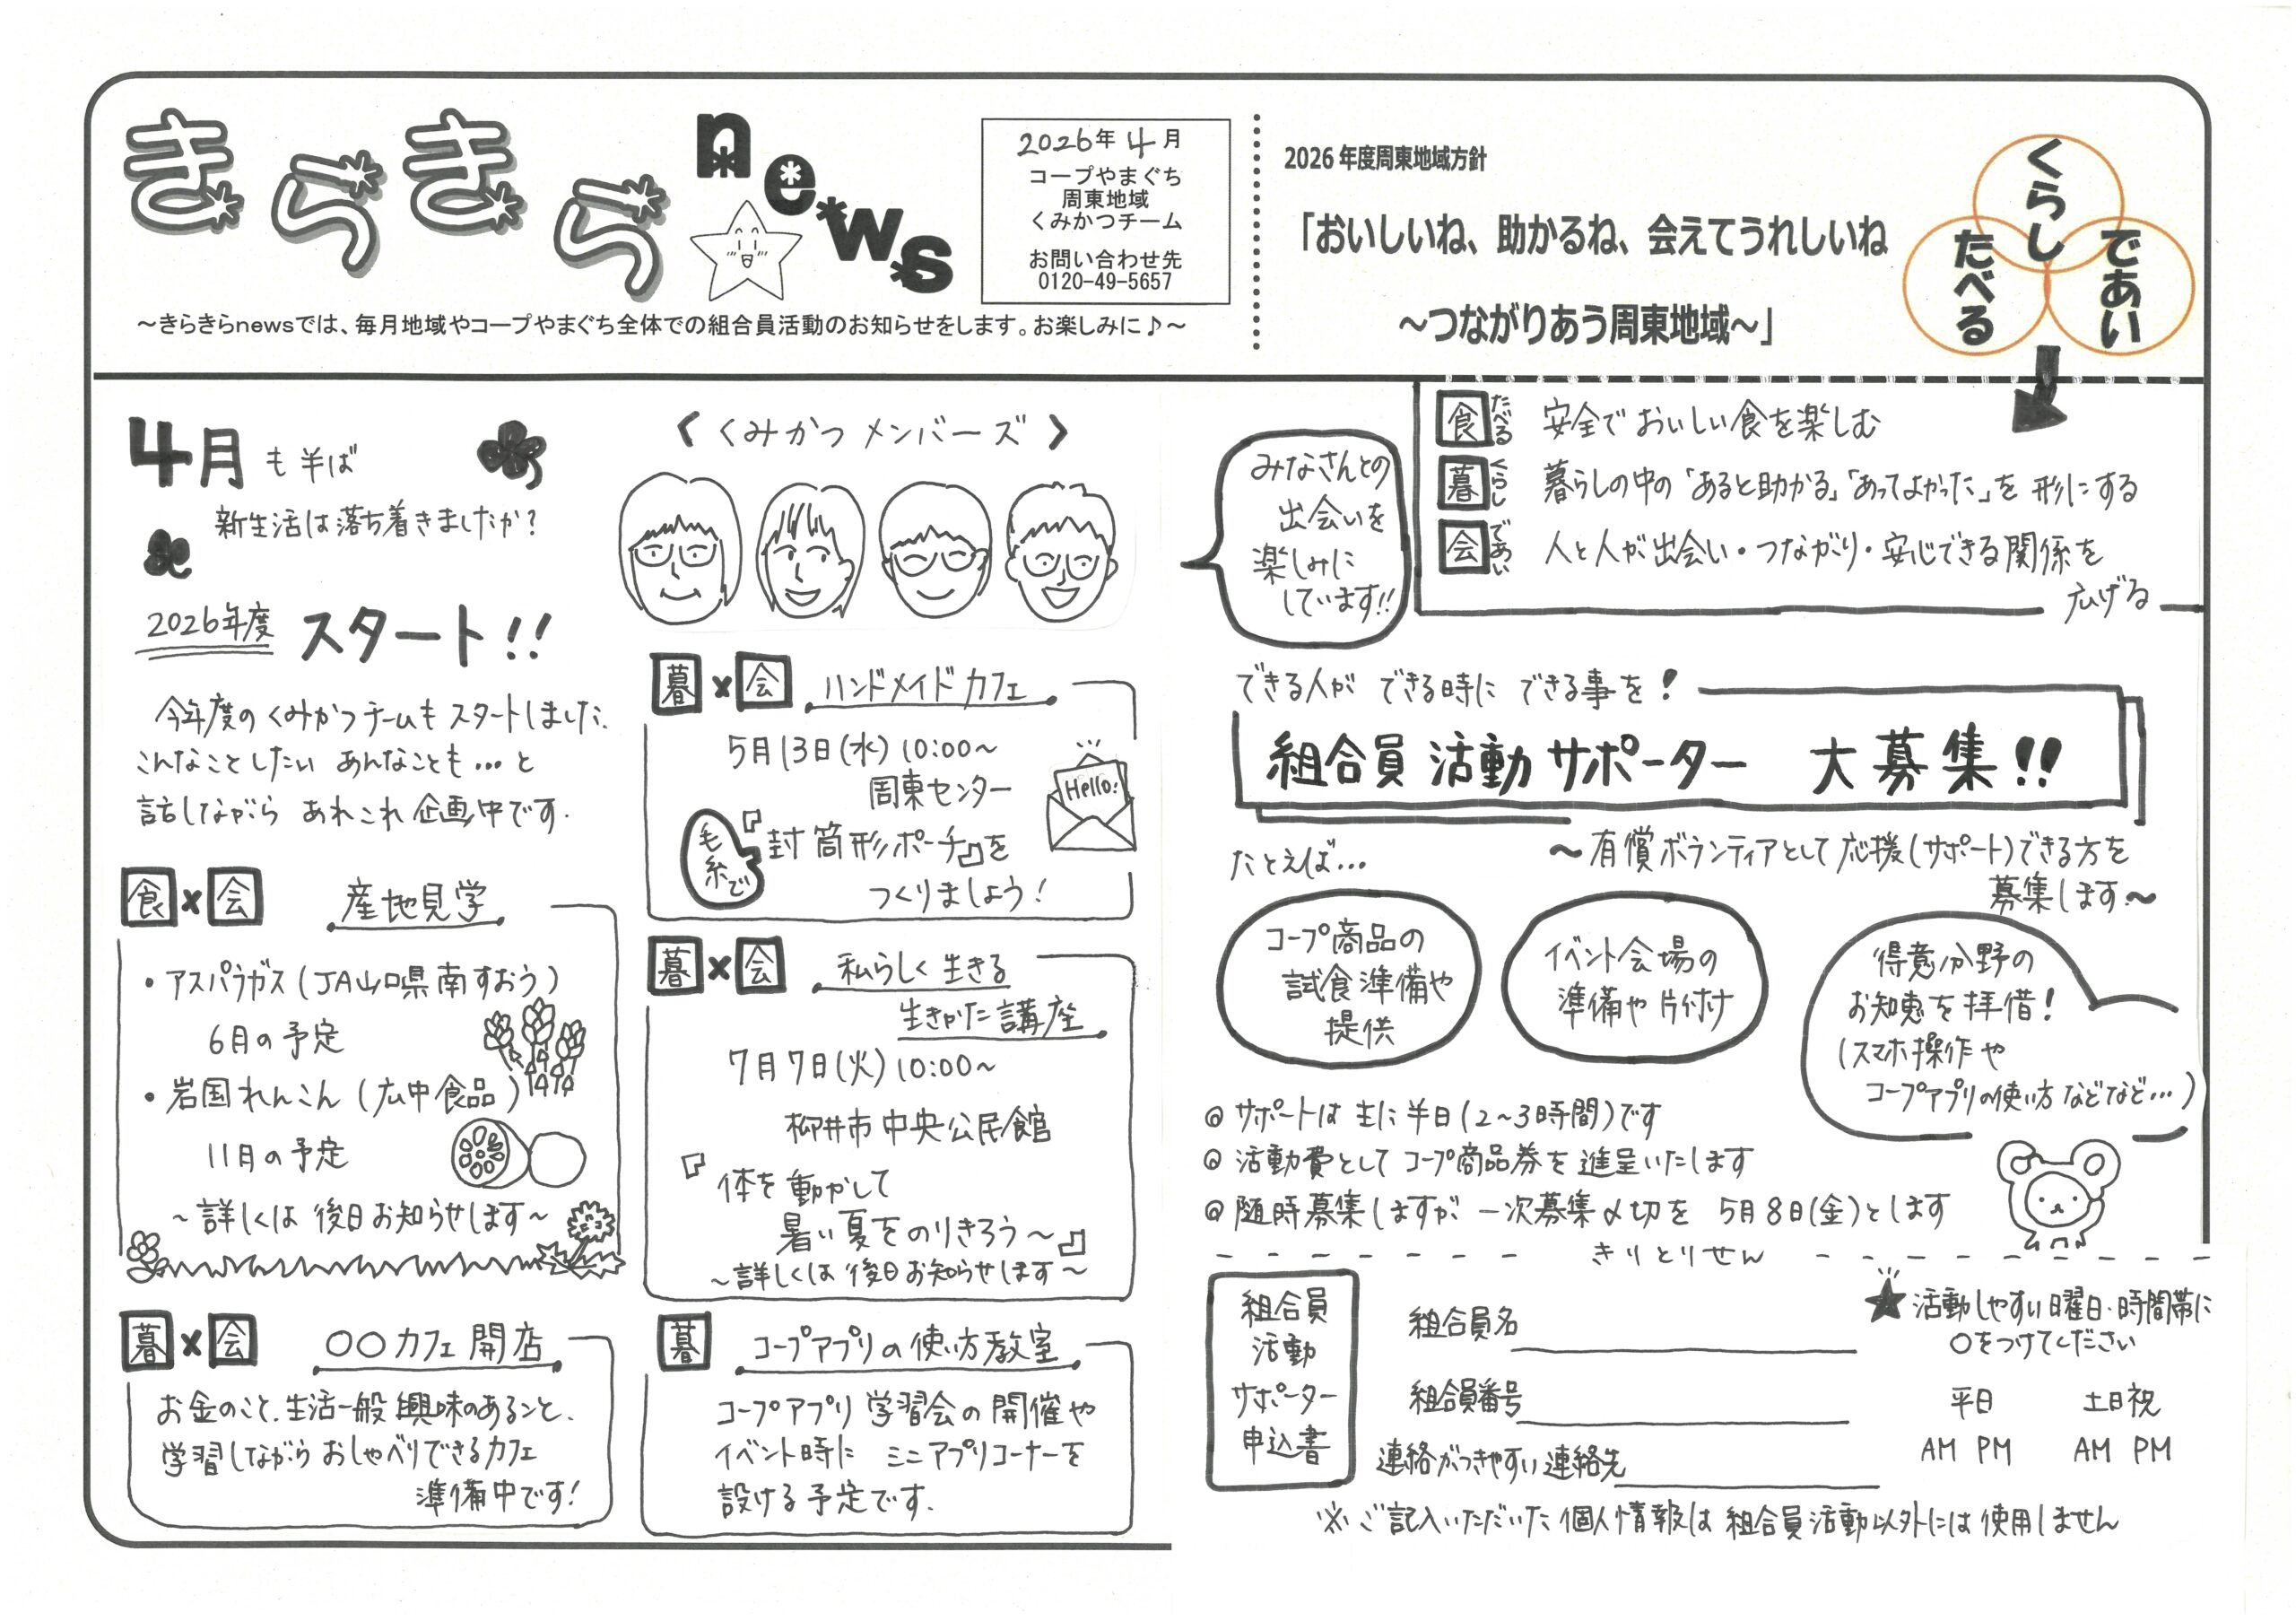 きらきら news
2026年 4月
コープやまぐち
周東地域
くみかつチーム
お問い合わせ先
0120-49-5657
～きらきらnewsでは、毎月地域やコープやまぐち全体での組合員活動のお知らせをします。お楽しみに♪～
2026 年度周東地域方針
「おいしいね、助かるね、会えてうれしいね
～つながりあう周東地域～」
くらし
たべる
であい
食 たべる 安全でおいしい食を楽しむ
暮 くらし 暮らしの中の「あると助かる」「あってよかった」を形にする
会 であい 人と人が出会い・つながり・安心できる関係を
広げる
4月も半ば
新生活は落ち着きましたか?
2026年度 スタート!!
今年度のくみかつチームもスタートしました.
こんなことしたい あんなことも…と
話しながら あれこれ企画中です.
〈くみかつメンバーズ〉
みなさんとの
出会いを
楽しみに
しています!!
食×会 産地見学
・アスパラガス(JA山口県南すおう)
6月の予定
・岩国れんこん(広中食品)
11月の予定
~詳しくは後日お知らせします~
暮×会 〇〇カフェ開店
お金のこと、生活一般興味のあること、
学習しながらおしゃべりできるカフェ
準備中です!
暮×会 ハンドメイドカフェ
5月13日(水)10:00~
周東センター
Hello!
毛糸で
『封筒形ポーチ』を
つくりましょう!
暮×会 私らしく生きる
生きかた講座
7月7日(火)10:00~
柳井市中央公民館
『体を動かして
暑い夏をのりきろう~』
~詳しくは後日お知らせします~
暮 コープアプリの使い方教室
コープアプリ学習会の開催や
イベント時に ミニアプリコーナーを
設ける予定です.
できる人が できる時に できる事を!
組合員活動サポーター 大募集!!
~有償ボランティアとして応援(サポート)できる方を
募集します~
たとえば…
コープ商品の
試食準備や
提供
イベント会場の
準備や片付け
得意分野の
お知恵を拝借!
(スマホ操作や
コープアプリの使い方などなど…)
◎サポートは主に半日(2~3時間)です
◎活動費としてコープ商品券を進呈いたします
◎随時募集しますが一次募集〆切を 5月8日(金)とします
きりとりせん
組合員
活動
サポーター
申込書
組合員名
組合員番号
連絡がつきやすい連絡先
★活動しやすい曜日・時間帯に
〇をつけてください
平日 土日祝
AM PM AM PM
※ご記入いただいた個人情報は組合員活動以外には使用しません